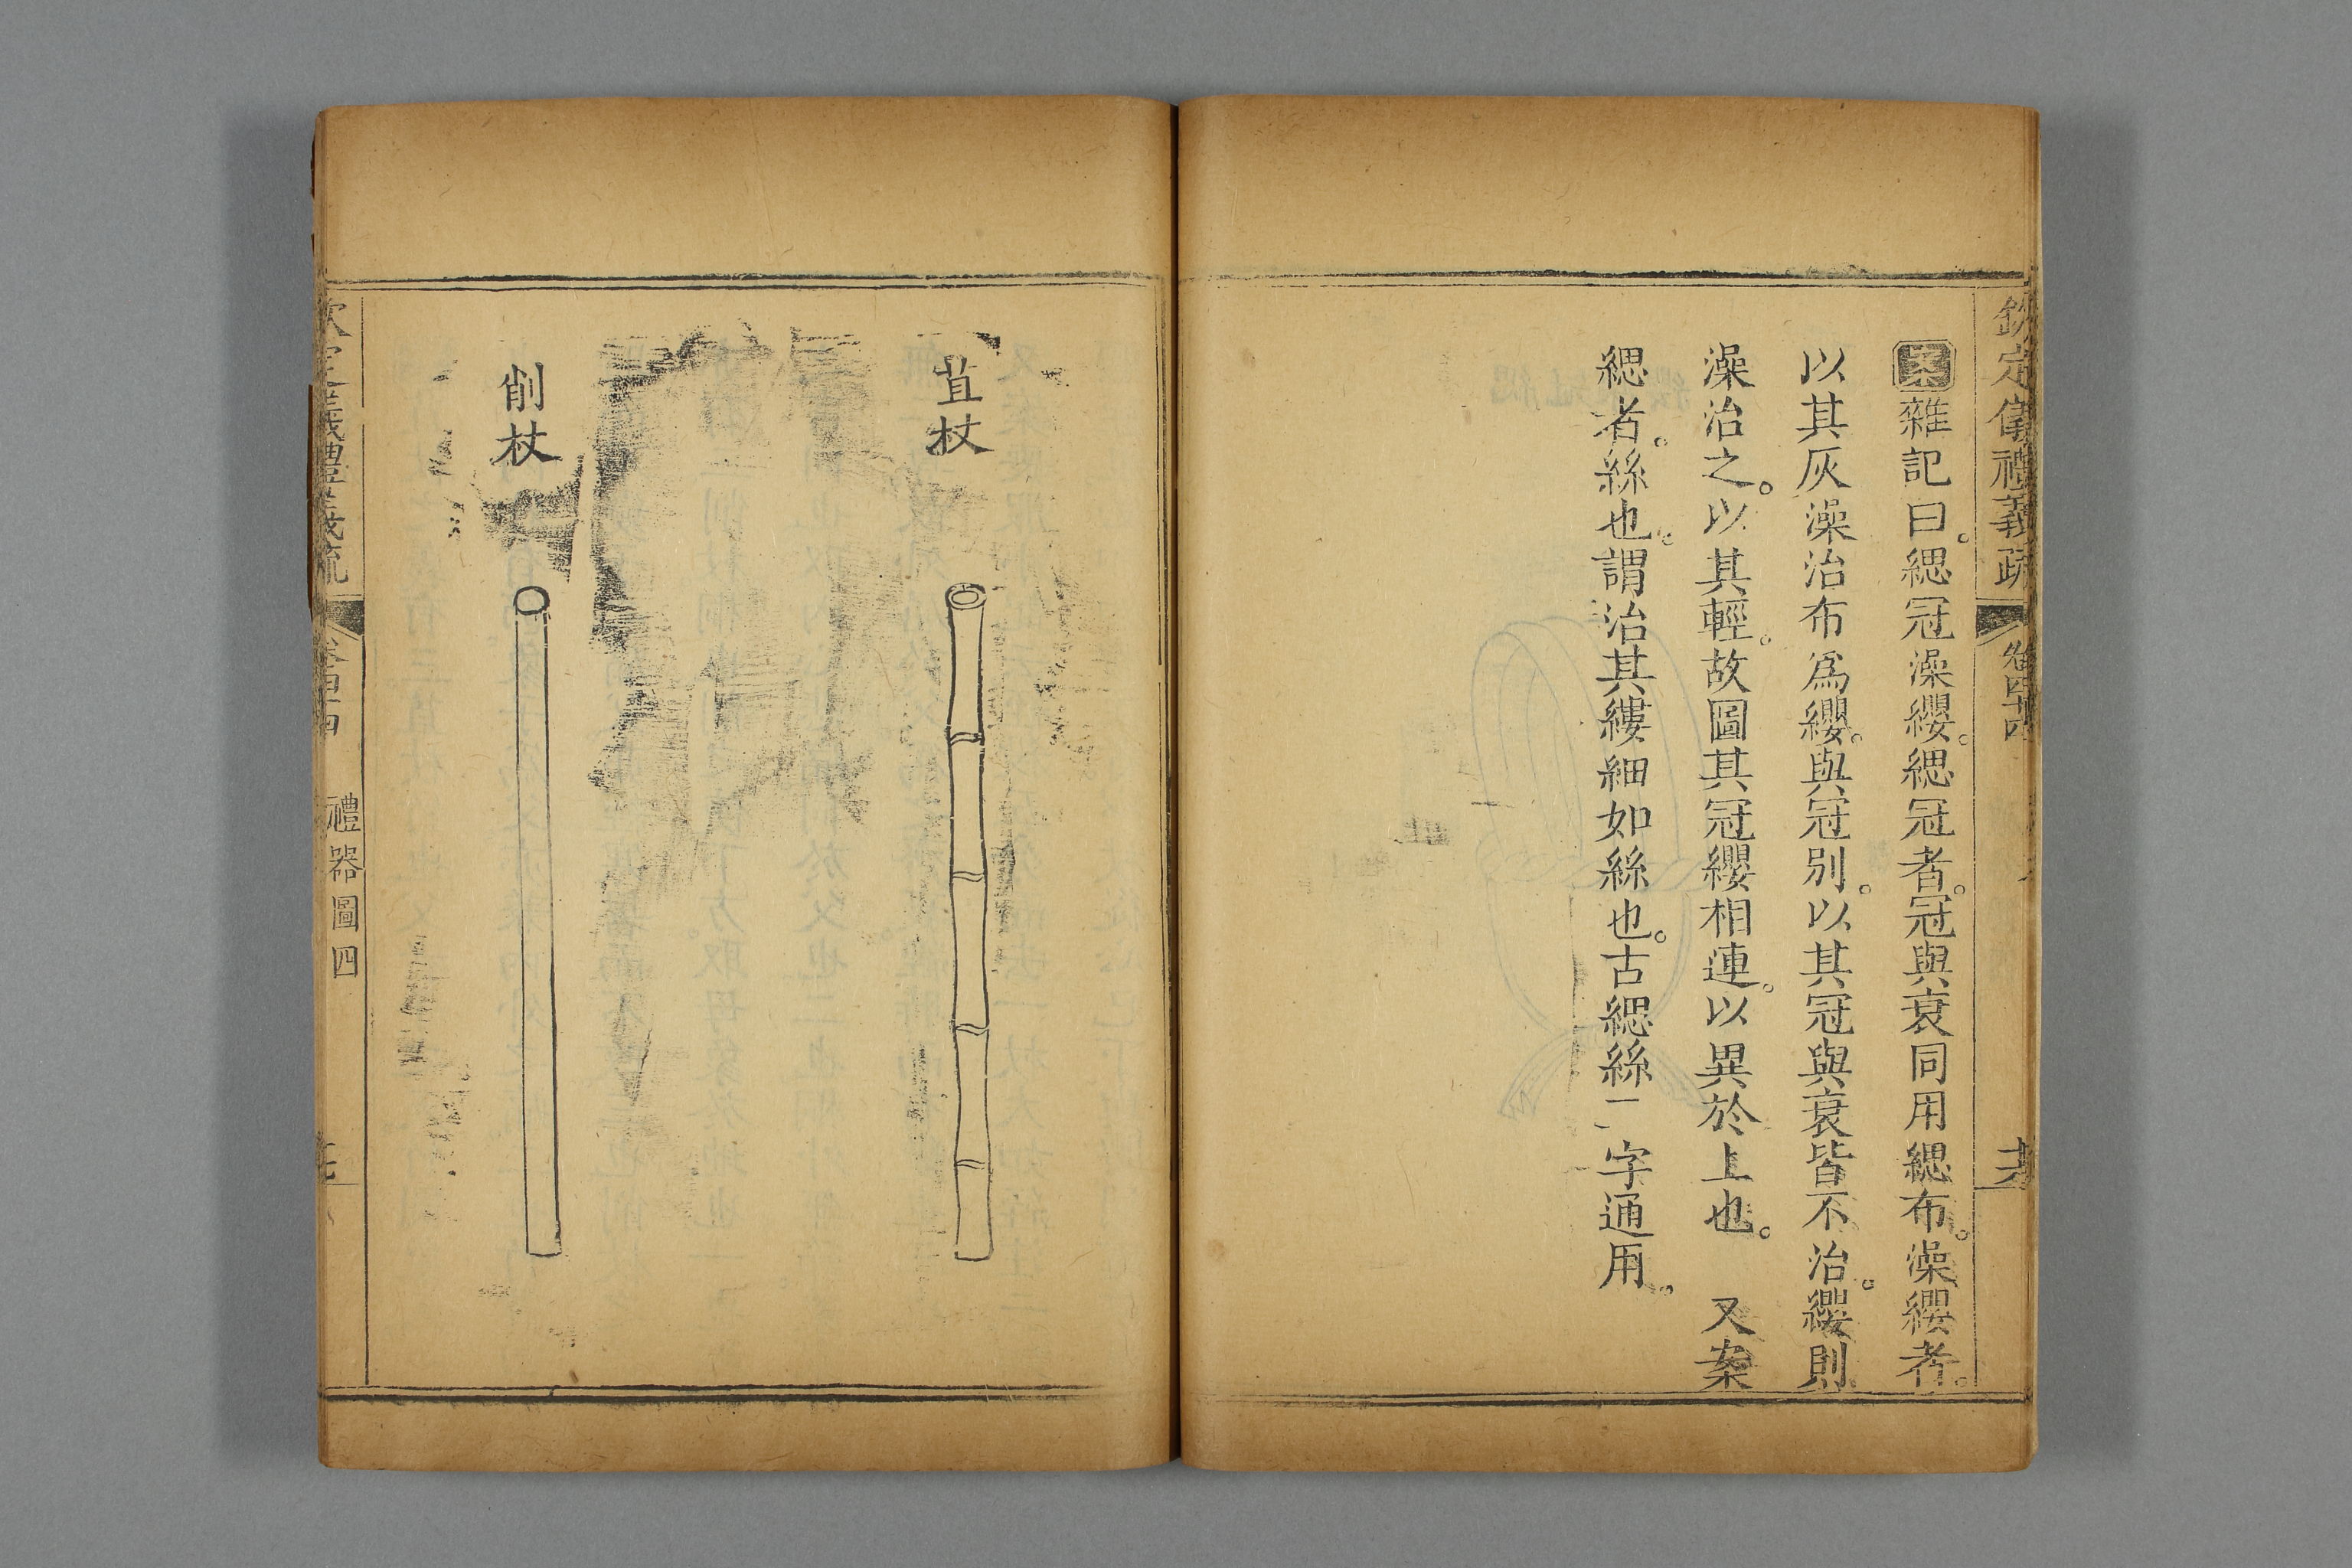 欽定儀禮義疏 卷四十四
案雜記曰。緦冠澡纓。緦冠者。冠與衰同用緦布。澡纓者。
以其灰澡治布爲纓。與冠別。以其冠與衰皆不治。纓則
澡治之。以其輕。故圖其冠纓相連。以異於上也。 又案
緦者。絲也。謂治其縷細如絲也。古緦絲二字通用。
苴杖
削杖
禮器圖四